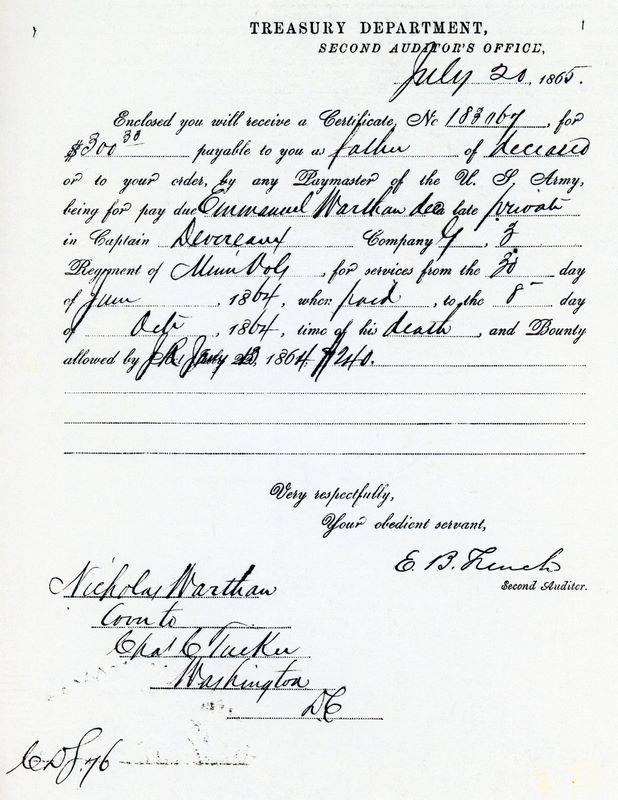 TREASURY DEPARTMENT,
SECOND AUDITOR'S OFFICE,
July 20, 1865.
Enclosed you will receive a Certificate, No 183067, for
$300 33 payable to you as father of deceased
or to your order, by any Paymaster of the U. S. Army,
being for pay due Emmanuel Warthan dec late private
in Captain Devereaux Company G, 3
Regiment of Minn Vols, for services from the 30 day
of June, 1864, when paid, to the 8 day
of Octr, 1864, time of his death, and Bounty
allowed by J.R. 1864 $240.
Very respectfully,
Your obedient servant,
E. B. French
Second Auditor.
Nicholas Warthan
Care to
Chas C Tucker
Washington
DC